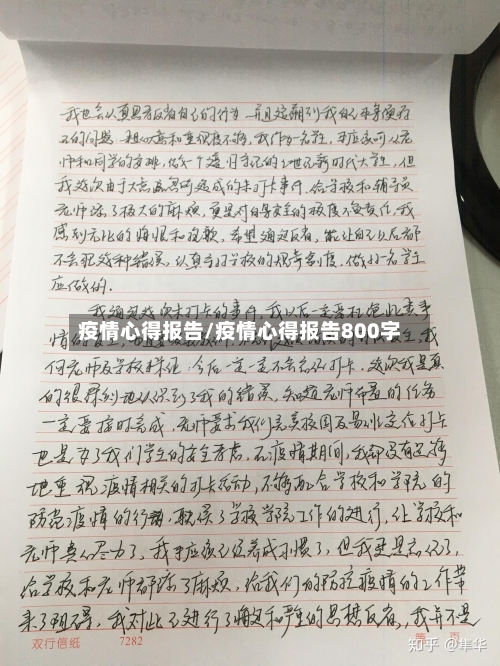 我也会认真思考反省自己的行为,并且这额到我自己本身存在
的问题,粗心意和重视度不够,我作为一名学生,本应该听从老
师和同学的安排,做一个遵归守纪的上进的新时代大学生,但
我这次由于大意疏忽所造成的未打卡事件,给学校和辅导员
老师添了极大的麻烦,更是对自身安全的极度不负责任,我
感到无比的悔恨和抱歉,希望通过反省,能让自己以后都
不会犯这种错误,认真学习学校的规章制度,做好一名学生
应做的。
我通过这次未打卡的事件,我以后一定要杜绝此类事
情的发生
疫情心得报告/疫情心得报告800字
何老师及学校保证,今后一定一定不会忘记打卡,这次我是真
的很深刻地认识到了我的错误,知道老师布置的任务
一定要按时完成,老师要求我们完美校园及易班定位打卡
也是为了我们学生的安全考虑,在疫情期间,我却没有足够
地重视疫情相关的打卡活动,不够配合学校和学院的
防范疫情的行动,耽误了学校学院工作的进行,让学校和
老师费心尽力了,我本应该已经养成习惯了,但我还是忘记了,
给学校和老师都添了麻烦,给我们的防控疫情的工作带
来了阻碍,我对此已进行了确定和严生的思想反省,我并不是
双行信纸 7282 第 页
知乎 @隼华